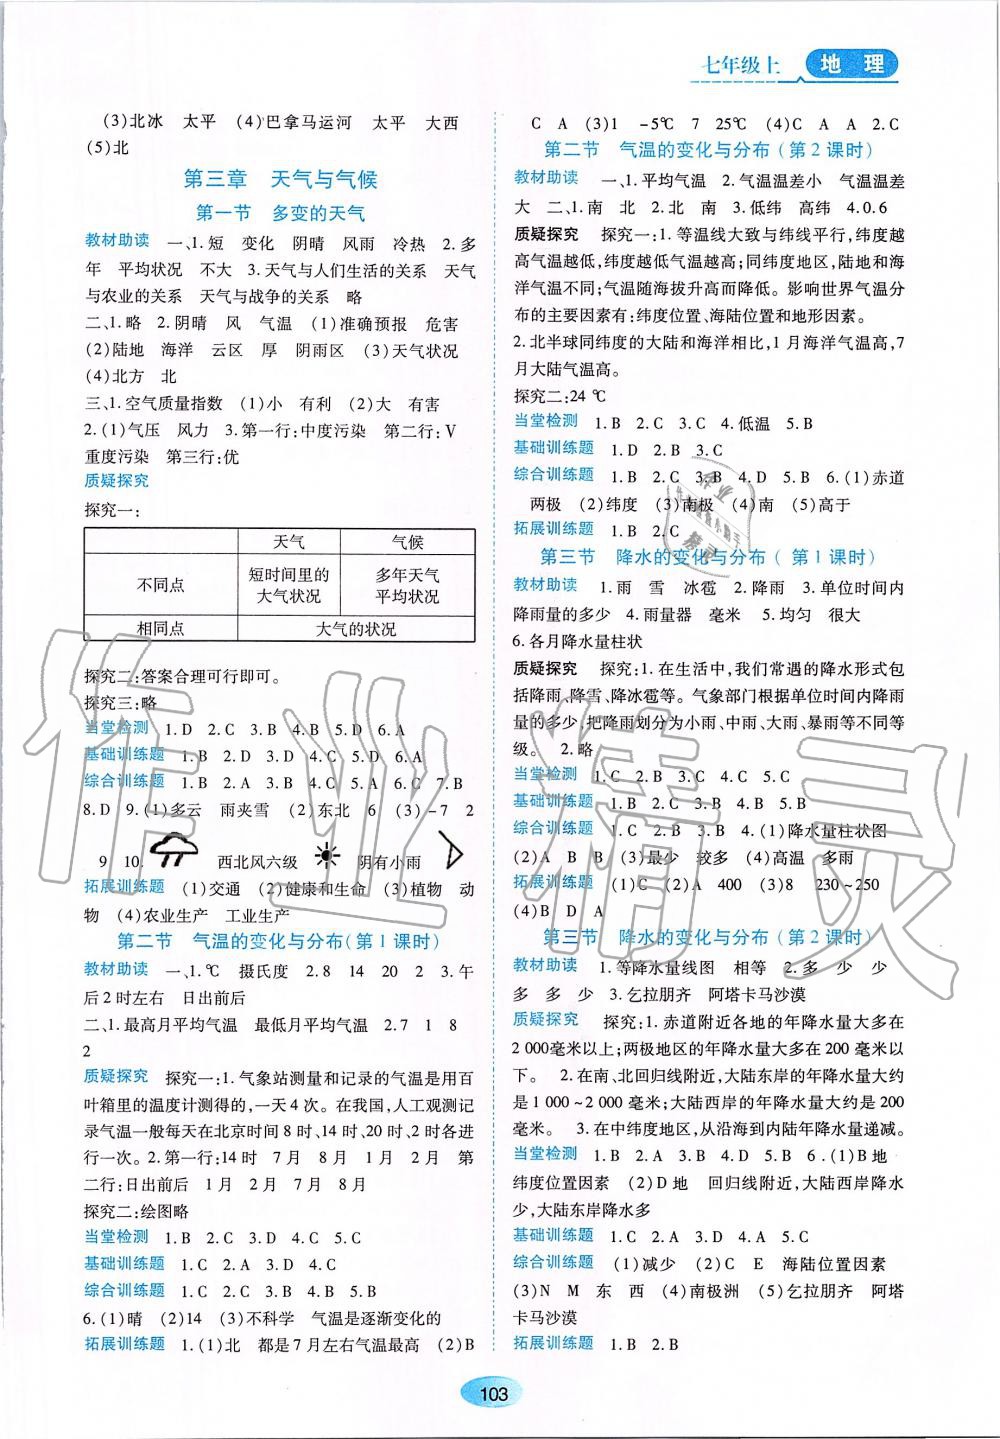 七年级上 地 理
(3)北冰 太平 (4)巴拿马运河 太平 大西
(5)北
第三章 天气与气候
第一节 多变的天气
教材助读 一、1.短 变化 阴晴 风雨 冷热 2.多
年 平均状况 不大 3.天气与人们生活的关系 天气
与农业的关系 天气与战争的关系 略
二、1.略 2.阴晴 风 气温 (1)准确预报 危害
(2)陆地 海洋 云区 厚 阴雨区 (3)天气状况
(4)北方 北
三、1.空气质量指数 (1)小 有利 (2)大 有害
2.(1)气压 风力 3.第一行:中度污染 第二行:Ⅴ
重度污染 第三行:优
质疑探究
探究一:
天气 气候
不同点 短时间里的大气状况 多年天气平均状况
相同点 大气的状况
探究二:答案合理可行即可。
探究三:略
当堂检测 1.D 2.C 3.B 4.B 5.D 6.A
基础训练题 1.B 2.D 3.D 4.C 5.D 6.A
综合训练题 1.B 2.A 3.B 4.A 5.C 6.C 7.B
8.D 9.(1)多云 雨夹雪 (2)东北 6 (3)-7 2
9 10. 西北风六级 阴有小雨
拓展训练题 (1)交通 (2)健康和生命 (3)植物 动
物 (4)农业生产 工业生产
第二节 气温的变化与分布(第1课时)
教材助读 一、1.℃ 摄氏度 2.8 14 20 2 3.午
后2时左右 日出前后
二、1.最高月平均气温 最低月平均气温 2.7 1 8
2
质疑探究 探究一:1.气象站测量和记录的气温是用百
叶箱里的温度计测得的,一天4次。在我国,人工观测记
录气温一般每天在北京时间8时、14时、20时、2时各进
行一次。2.第一行:14时 7月 8月 1月 2月 第
二行:日出前后 1月 2月 7月 8月
探究二:绘图略
当堂检测 1.B 2.C 3.C 4.B 5.C
基础训练题 1.C 2.A 3.D 4.C
综合训练题 1.C 2.C 3.B 4.B 5.B
6.(1)晴 (2)14 (3)不科学 气温是逐渐变化的
拓展训练题 1.(1)北 都是7月左右气温最高 (2)B
C A (3)1 -5℃ 7 25℃ (4)C A A 2.C
第二节 气温的变化与分布(第2课时)
教材助读 一、1.平均气温 2.气温温差小 气温温差
大 二、1.南 北 2.北 南 3.低纬 高纬 4.0.6
质疑探究 探究一:1.等温线大致与纬线平行,纬度越
高气温越低,纬度越低气温越高;同纬度地区,陆地和海
洋气温不同;气温随海拔升高而降低。影响世界气温分
布的主要因素有:纬度位置、海陆位置和地形因素。
2.北半球同纬度的大陆和海洋相比,1月海洋气温高,7
月大陆气温高。
探究二:24 ℃
当堂检测 1.B 2.C 3.C 4.低温 5.B
基础训练题 1.D 2.B 3.C
综合训练题 1.C 2.B 3.B 4.D 5.B 6.(1)赤道
两极 (2)纬度 (3)南极 (4)南 (5)高于
拓展训练题 1.B 2.C
第三节 降水的变化与分布(第1课时)
教材助读 1.雨 雪 冰雹 2.降雨 3.单位时间内
降雨量的多少 4.雨量器 毫米 5.均匀 很大
6.各月降水量柱状
质疑探究 探究:1.在生活中,我们常遇的降水形式包
括降雨、降雪、降冰雹等。气象部门根据单位时间内降雨
量的多少,把降雨划分为小雨、中雨、大雨、暴雨等不同等
级。 2.略
当堂检测 1.C 2.C 3.B 4.C 5.B
基础训练题 1.C 2.B 3.D 4.C 5.B
综合训练题 1.D 2.B 3.B 4.(1)降水量柱状图
(2)A B B (3)最少 较多 (4)高温 多雨
拓展训练题 (1)C (2)A 400 (3)8 230~250
(4)B D A
第三节 降水的变化与分布(第2课时)
教材助读 1.等降水量线图 相等 2.多 少 少
多 多 少 3.乞拉朋齐 阿塔卡马沙漠
质疑探究 探究:1.赤道附近各地的年降水量大多在
2 000毫米以上;两极地区的年降水量大多在200毫米以
下。 2.在南、北回归线附近,大陆东岸的年降水量大约
是1 000~2 000毫米;大陆西岸的年降水量大约是200
毫米。 3.在中纬度地区,从沿海到内陆年降水量递减。
当堂检测 1.B 2.A 3.B 4.D 5.B 6.(1)B地
纬度位置因素 (2)D地 回归线附近,大陆西岸降水
少,大陆东岸降水多
基础训练题 1.C 2.A 3.D 4.A 5.C
综合训练题 (1)减少 (2)C E 海陆位置因素
(3)N M 东 西 (4)南极洲 (5)乞拉朋齐 阿塔
卡马沙漠
拓展训练题 1.B 2.B
103
作业精灵